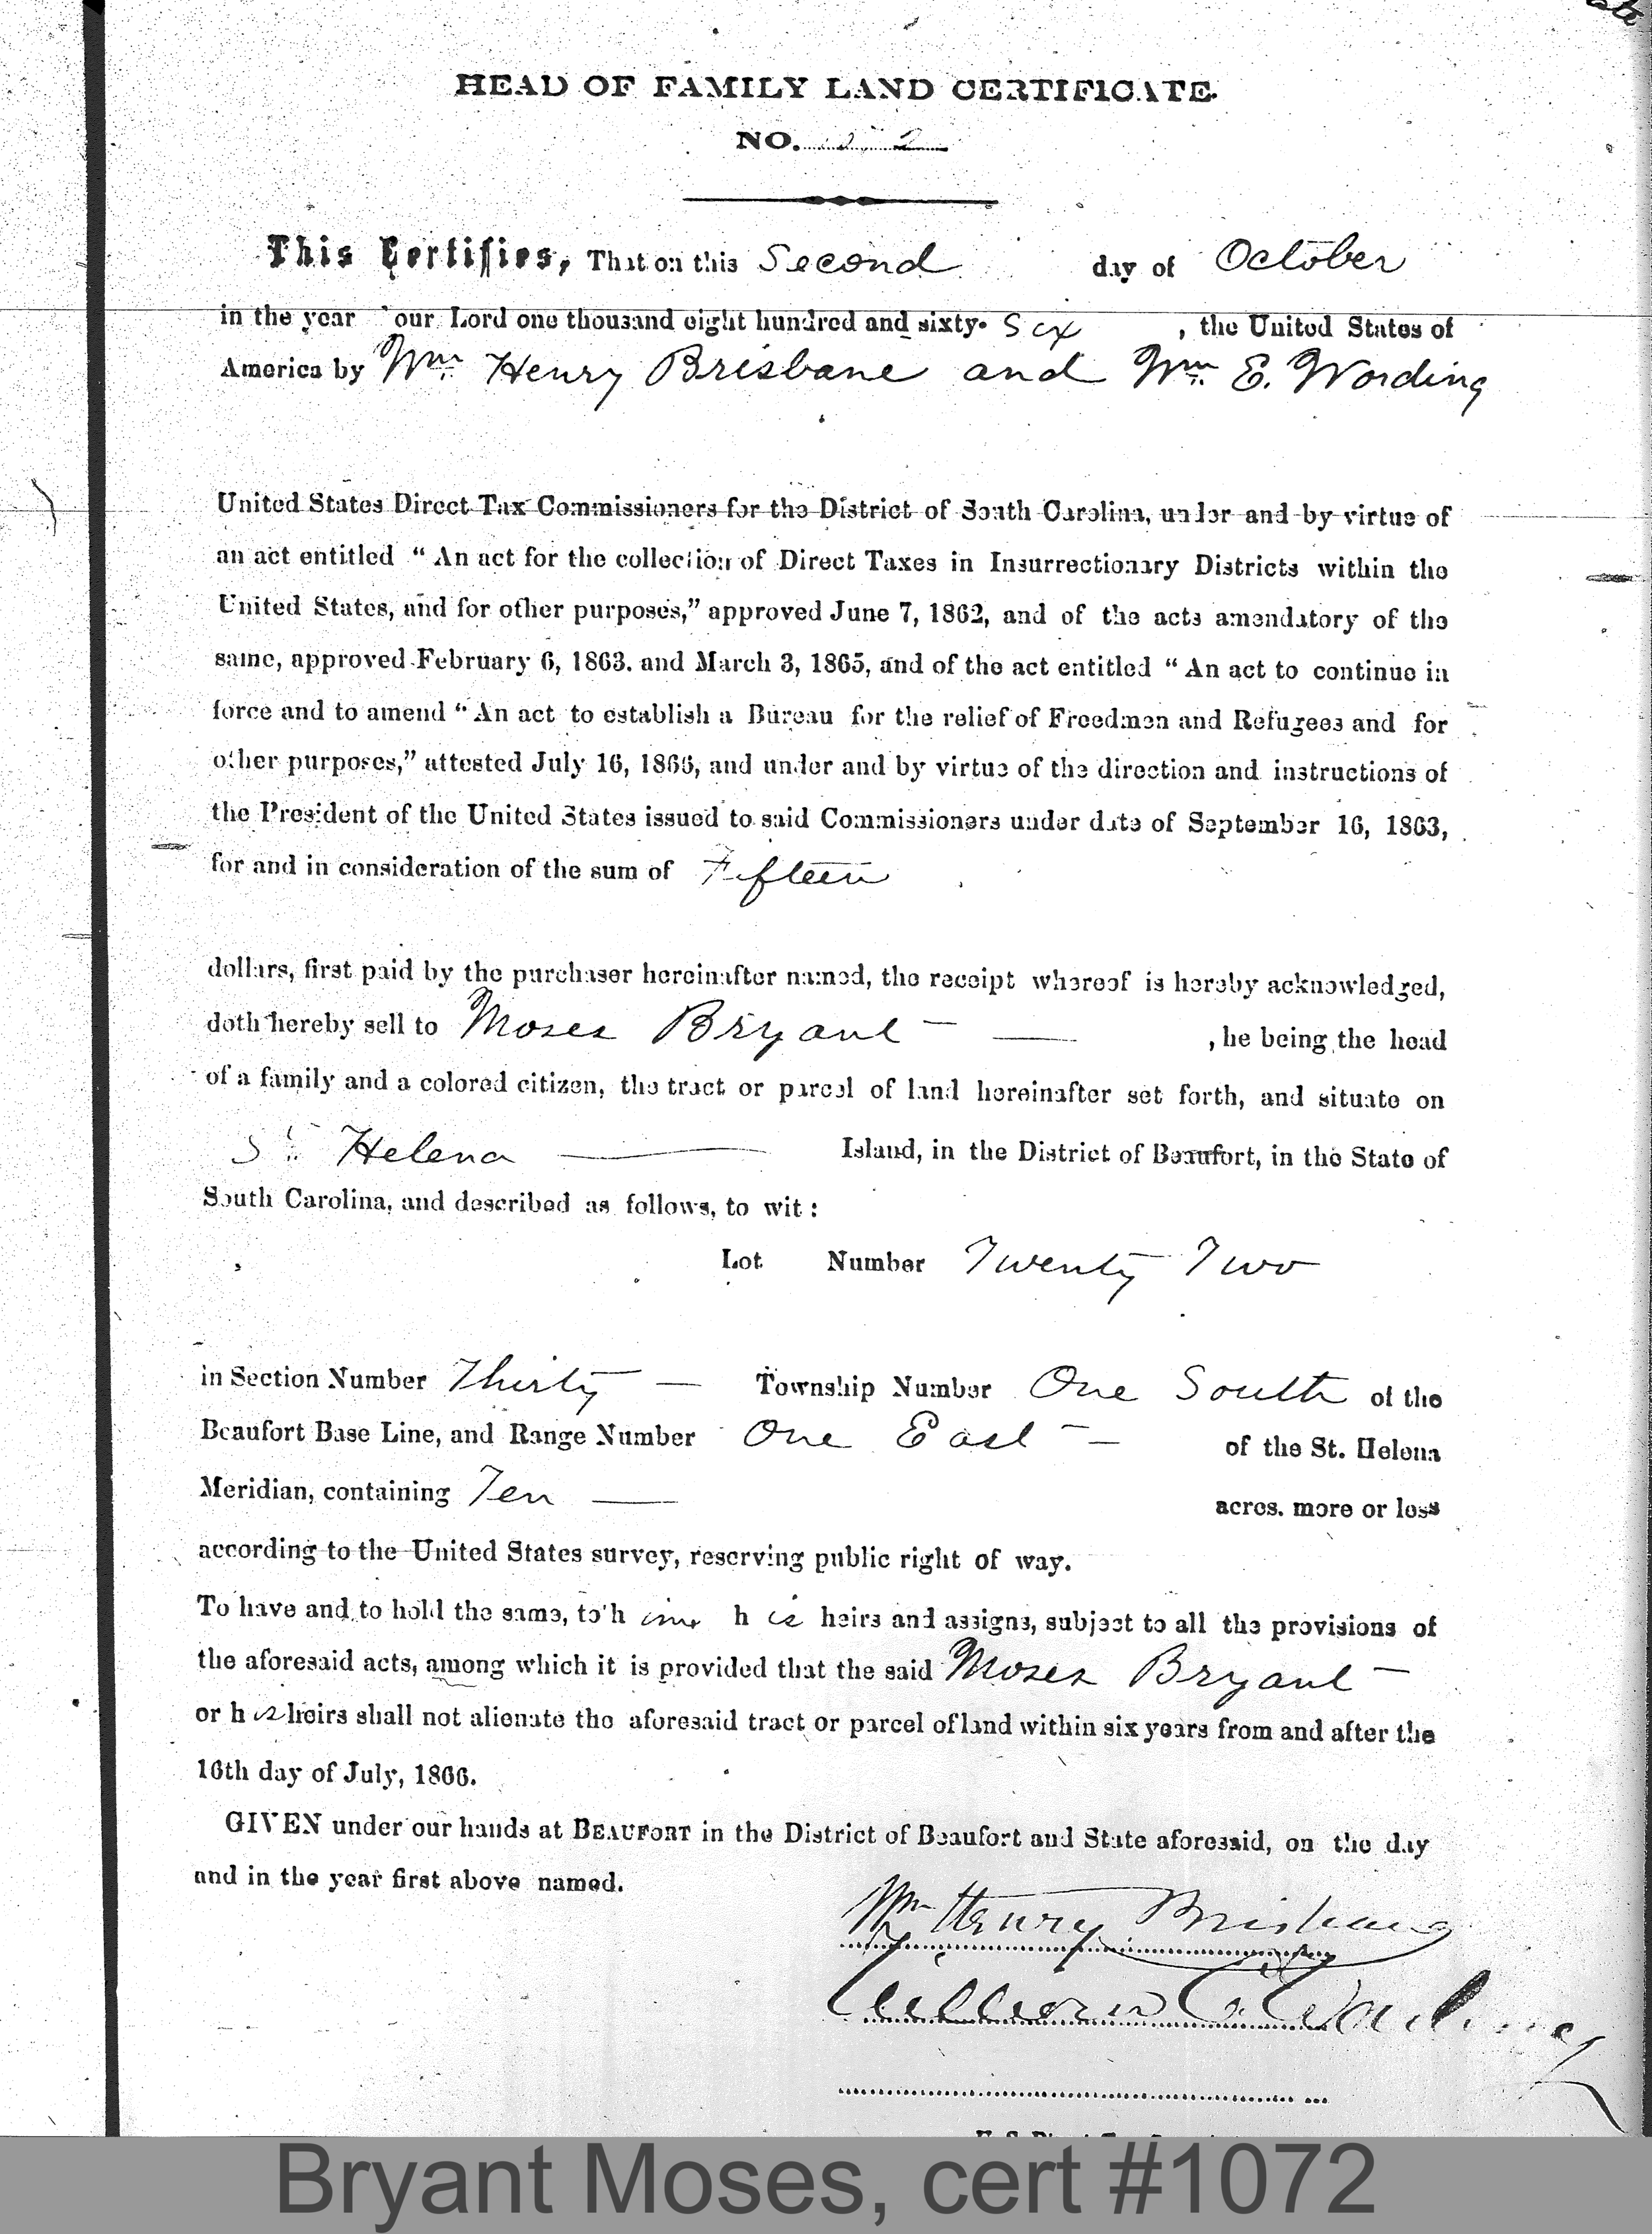 HEAD OF FAMILY LAND CERTIFICATE.
NO.
This Certifies, That on this Second day of October
in the year our Lord one thousand eight hundred and sixty- Six , the United States of
America by Wm. Henry Brisbane and Wm. E. Wording
United States Direct Tax Commissioners for the District of South Carolina, under and by virtue of
an act entitled “An act for the collection of Direct Taxes in Insurrectionary Districts within the
United States, and for other purposes,” approved June 7, 1862, and of the acts amendatory of the
same, approved February 6, 1863. and March 3, 1865, and of the act entitled “An act to continue in
force and to amend “An act to establish a Bureau for the relief of Freedmen and Refugees and for
other purposes,” attested July 16, 1866, and under and by virtue of the direction and instructions of
the President of the United States issued to said Commissioners under date of September 16, 1863,
for and in consideration of the sum of Fifteen
dollars, first paid by the purchaser hereinafter named, the receipt whereof is hereby acknowledged,
doth hereby sell to Moses Bryant — , he being the head
of a family and a colored citizen, the tract or parcel of land hereinafter set forth, and situate on
St. Helena — Island, in the District of Beaufort, in the State of
South Carolina, and described as follows, to wit:
Lot Number Twenty Two
in Section Number Thirty — Township Number One South of the
Beaufort Base Line, and Range Number One East — of the St. Helena
Meridian, containing Ten — acres. more or less
according to the United States survey, reserving public right of way.
To have and to hold the same, to h im h is heirs and assigns, subject to all the provisions of
the aforesaid acts, among which it is provided that the said Moses Bryant
or h is heirs shall not alienate the aforesaid tract or parcel of land within six years from and after the
16th day of July, 1866.
GIVEN under our hands at BEAUFORT in the District of Beaufort and State aforesaid, on the day
and in the year first above named.
Wm Henry Brisbane
William E. Wording
Bryant Moses, cert #1072